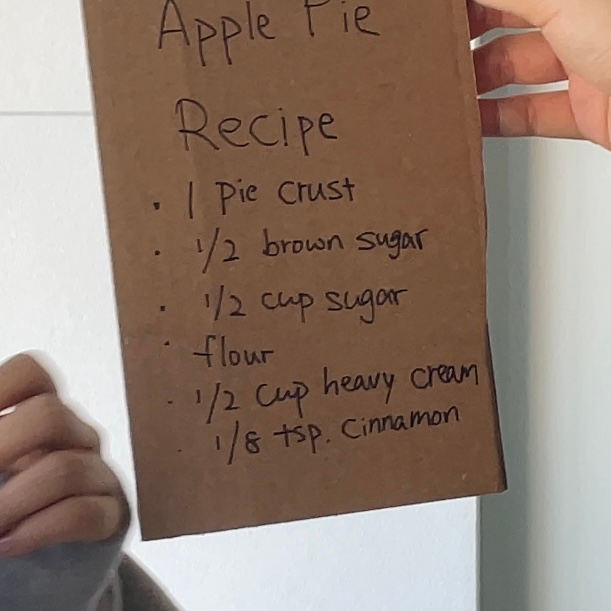 Apple Pie
Recipe
· 1 Pie crust
· 1/2 brown sugar
· 1/2 cup sugar
· flour
· 1/2 cup heavy cream
· 1/8 tsp. Cinnamon